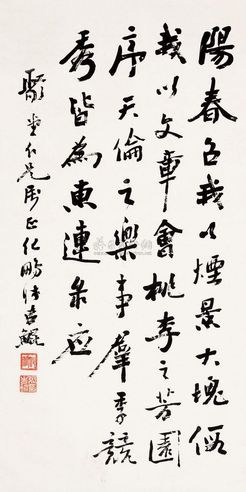 陽春召我以煙景大塊假
我以文章會桃李之芳園
序天倫之樂事羣季競
秀皆為惠連
堂仁兄正化鵬